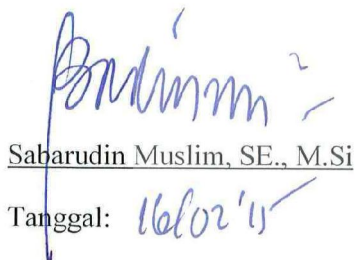 Sabarudin Muslim, SE., M.Si
Tanggal: 16/02'15